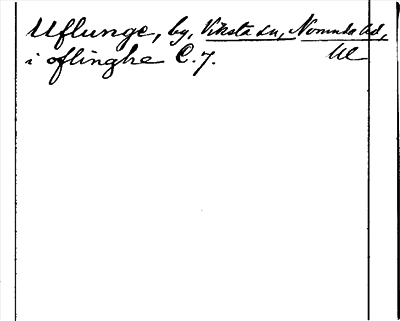 Uflunge, by, Viksta sn, Norunda hd,
i oflinghe C. 7. Ul